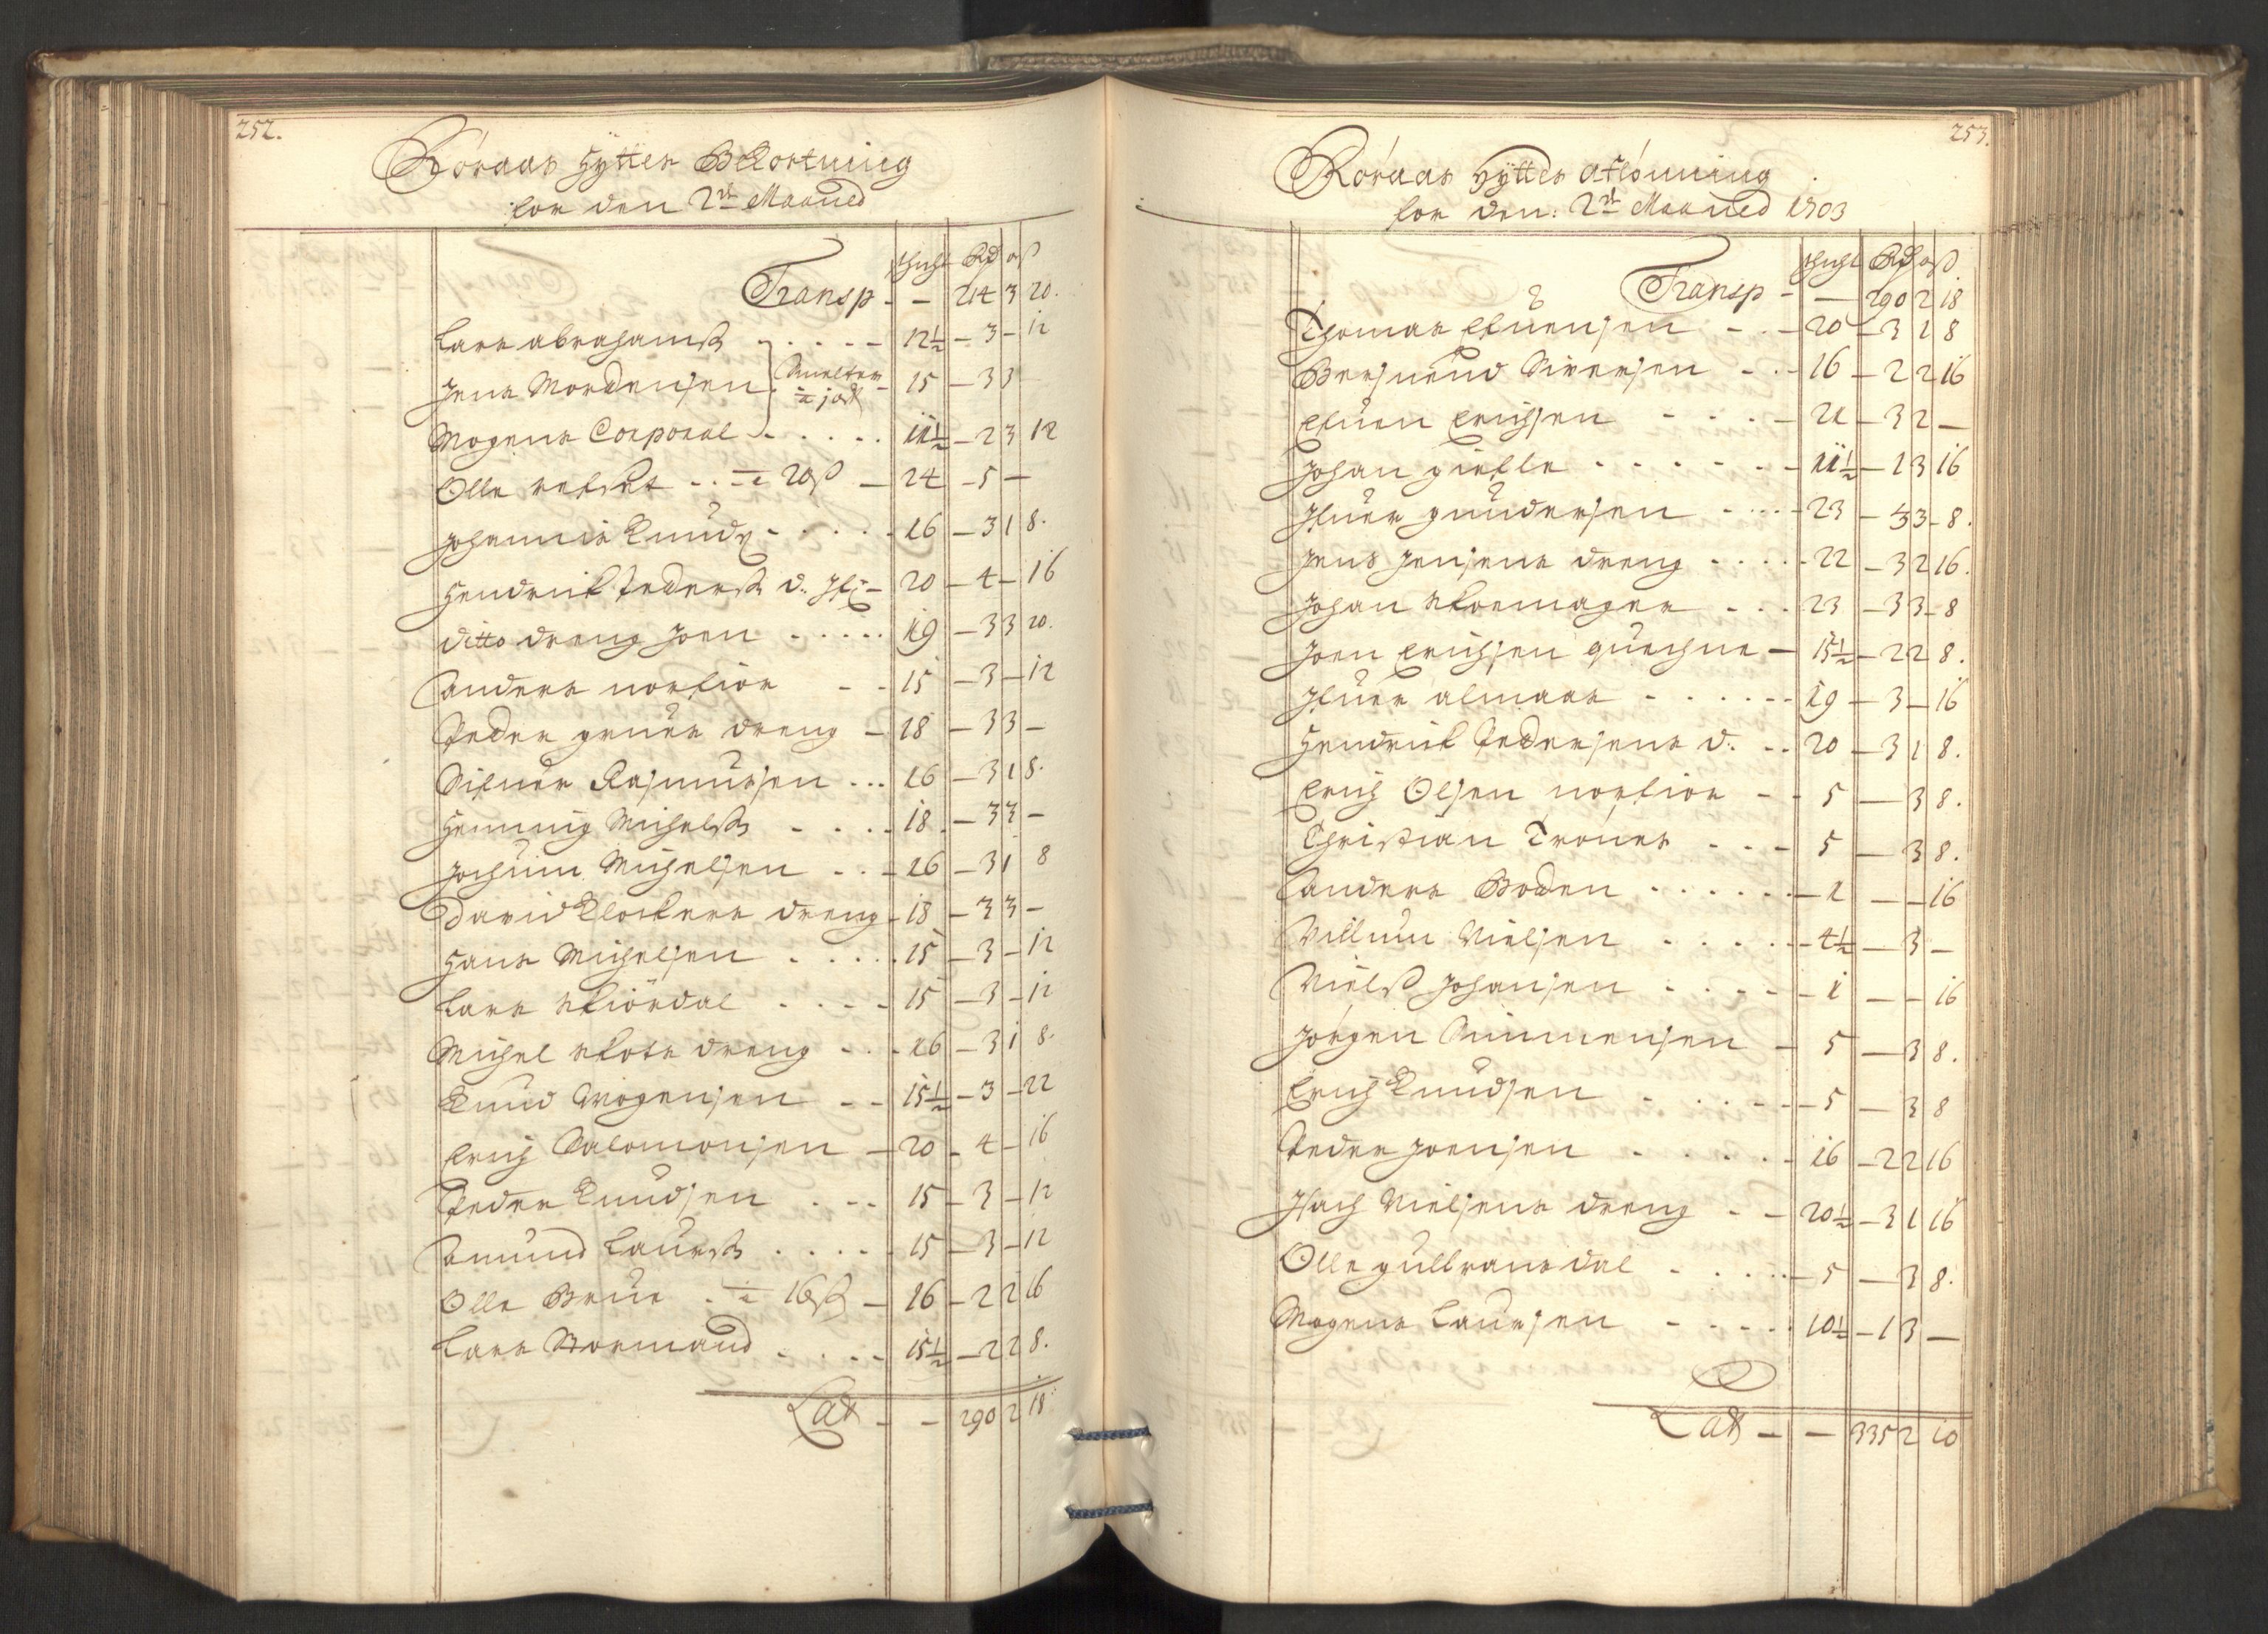 252.
Röraas Hytter BKortning
for den 2de Maaned
schicht Rd ort ß
Transp - - 214 3 20.
Lars abrahamß - 12½ - 3 - 12
Jens Mordensen - 15 - 3 3
Smelter
Mogens Corporal - 11½ - 2 3 12
Olle - a 20 ß - 24 - 5 -
Johannis Knudß - 16 - 3 1 8.
Hendrick Pederß d. - 20 - 4 - 16
ditto dreng Joen - 19 - 3 3 20.
anders norfior - 15 - 3 - 12
Peder grues dreng - 18 - 3 3 -
Sifuer Rasmusen - 16 - 3 1 8.
Henning Michelß - 18 - 3 3 -
Jochum Michelsen - 16 - 3 1 8
David Klockers dreng - 18 - 3 3 -
Hans Michelsen - 15 - 3 - 12
Lars stiördal - 15 - 3 - 12
Michel skots dreng - 16 - 3 1 8.
Knud Mogensen - 15½ - 3 - 22
Erich Salomonsen - 20 - 4 - 16
Peder Knudsen - 15 - 3 - 12
amund Laurß - 15 - 3 - 12
Olle Brue a 16 ß - 16 - 2 2 16
Lars Normand - 15½ - 2 2 8.
Lat - - 290 2 18
253.
Röraas Hytter aflönning
for den: 2de Maaned 1703
schicht Rd ort ß
Transp - - 290 2 18
Thomas Efuensen - 20 - 3 1 8
Bersuend Siversen - 16 - 2 2 16
Efuen Erichsen - 21 - 3 2 -
Johan giefle - 11½ - 1 3 16
Ifuer gundersen - 23 - 3 3 - 8.
Jens Jensens dreng - 22 - 3 2 16.
Johan skoemager - 23 - 3 3 - 8
Joen Erichsen quechne - 15½ - 2 2 8.
Ifuer almaas - 19 - 3 - 16
Hendrick Pedersens d. - 20 - 3 1 8.
Erich Olsen norfior - 5 - 3 8.
Christian Trönes - 5 - 3 8.
anders Boden - 1 - - 16
Villum Nielsen - 4½ - 3 -
Nielß Johansen - 1 - - 16
Jörgen Simmensen - 5 - 3 8.
Erich Knudsen - 5 - 3 8
Peder Joensen - 16 - 2 2 16
Isach Nielsens dreng - 20½ - 3 1 16
Olle gulbransdal - 5 - 3 8.
Mogens Laursen - 10½ - 1 3 -
Lat - - 335 2 10